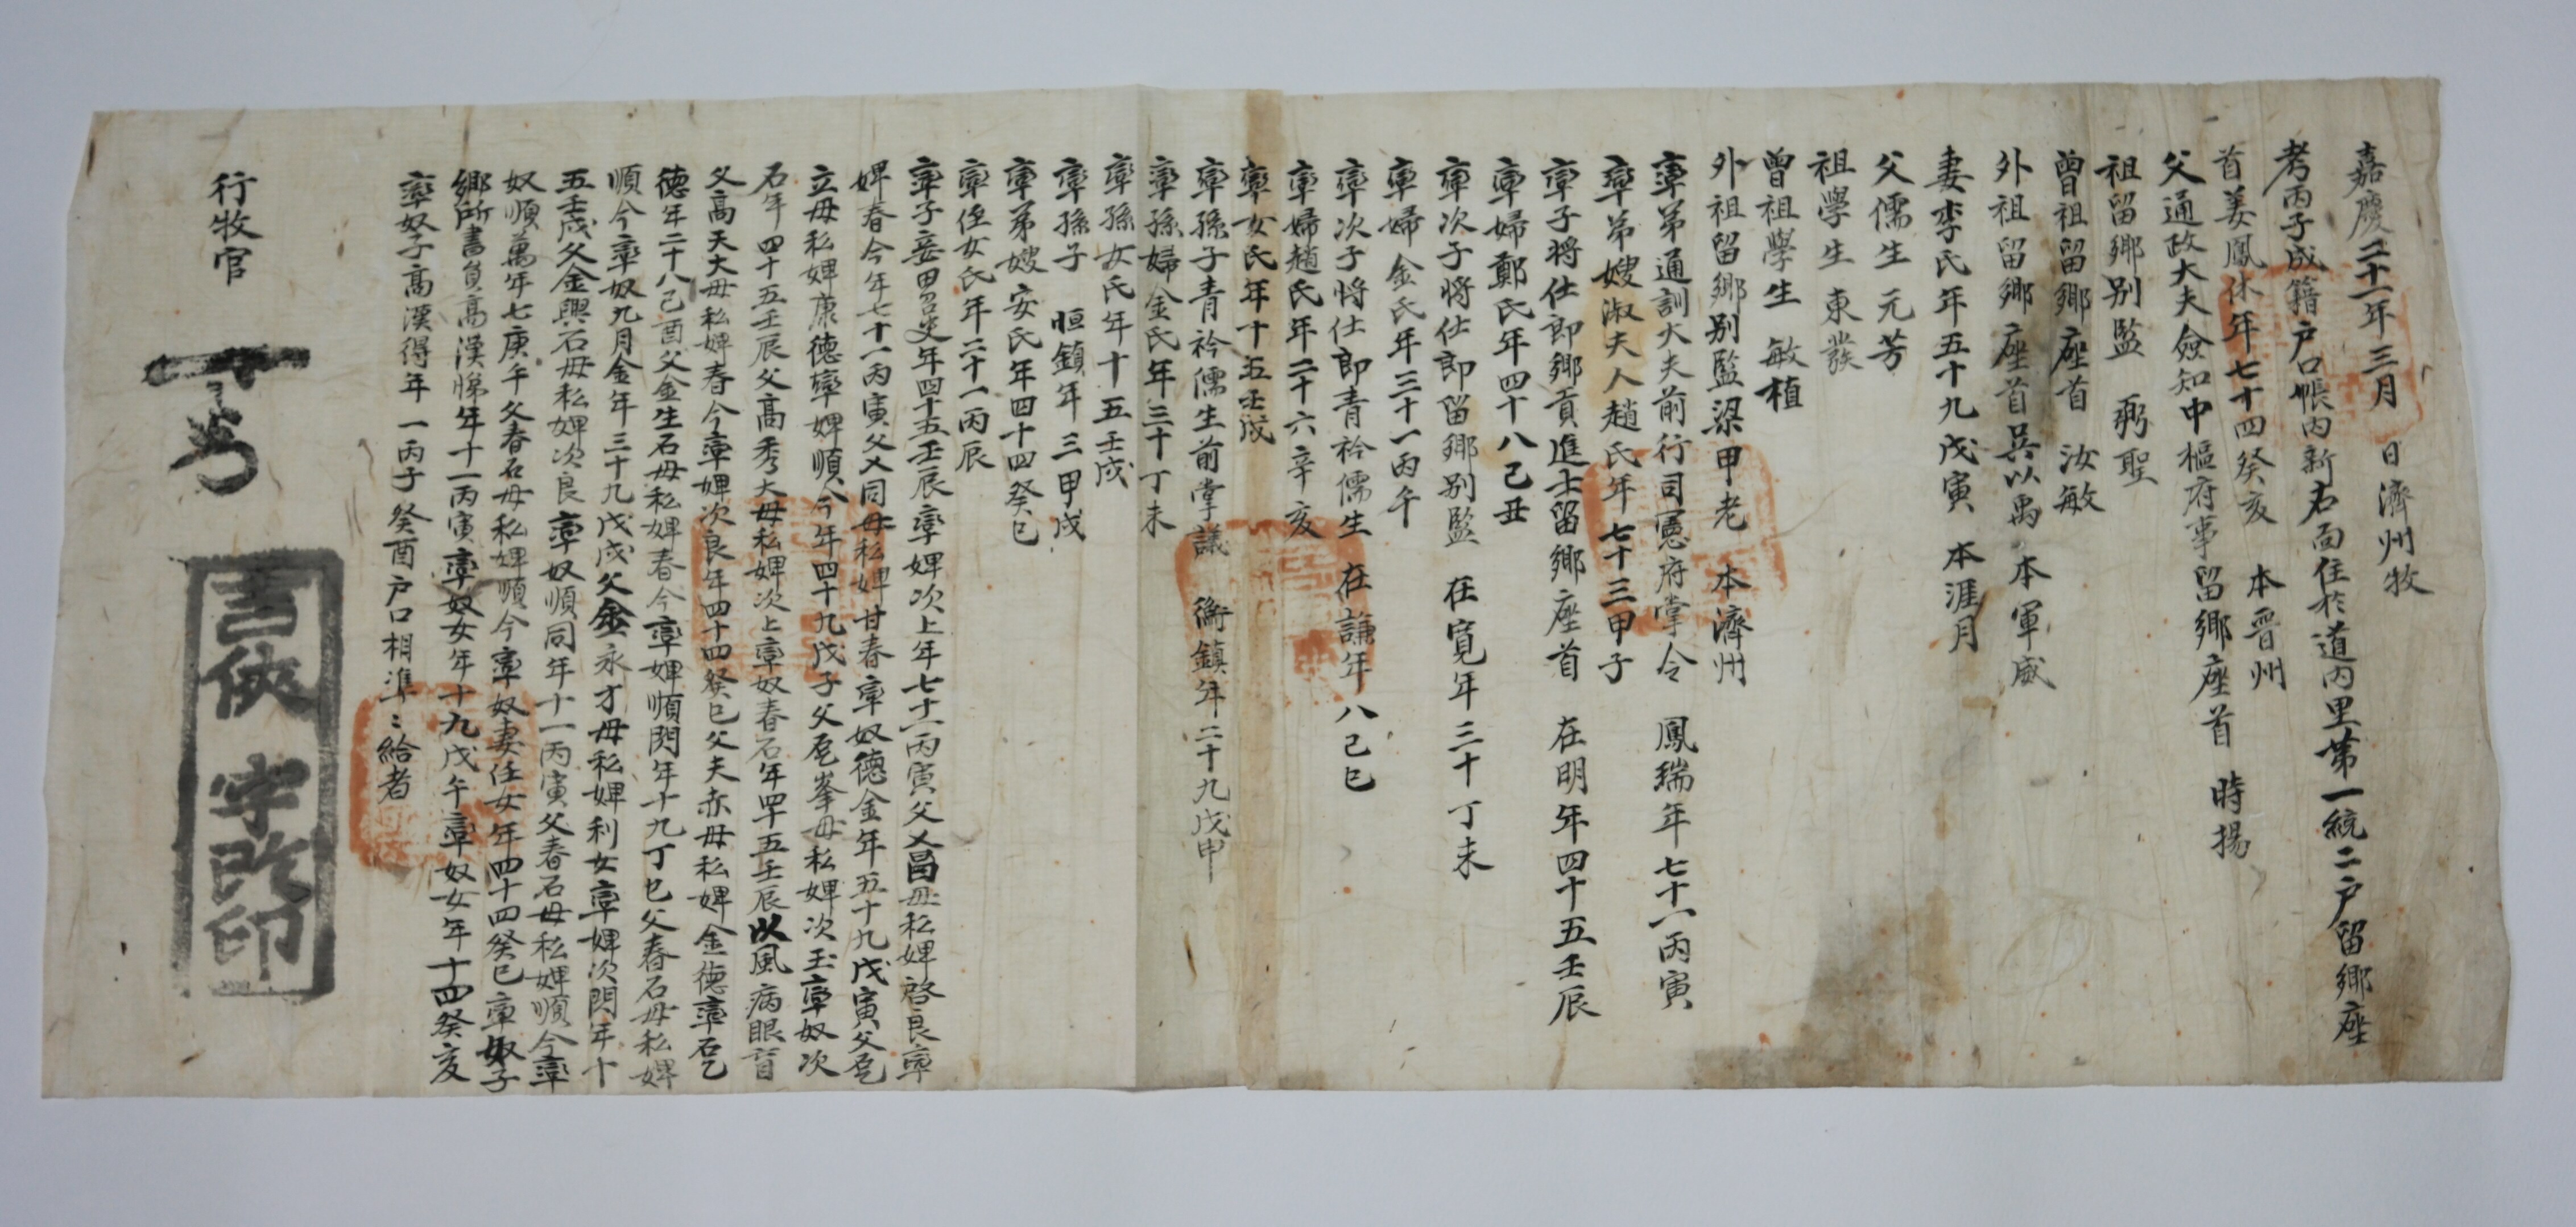 嘉慶二十一年三月　日濟州牧
考丙子成籍戶口帳內新右面住於道內里第一統二戶留鄉座
首姜鳳休年七十四癸亥　本晋州
父通政大夫僉知中樞府事留鄉座首　時揚
祖留鄉別監　弼聖
曾祖留鄉座首　汝敏
外祖留鄉座首吳以禹　本軍威
妻李氏年五十九戊寅　本涯月
父儒生元芳
祖學生東發
曾祖學生　敏植
外祖留鄉別監梁甲老　本濟州
率弟通訓大夫前行司憲府掌令　鳳瑞年七十一丙寅
率弟嫂淑夫人趙氏年七十三甲子
率子將仕郎鄉貢進士留鄉座首　在明年四十五壬辰
率婦鄭氏年四十八己丑
率次子將仕郎留鄉別監　在寬年三十丁未
率婦金氏年三十一丙午
率次子將仕郎青衿儒生　在謙年八己巳
率婦趙氏年二十六辛亥
率女氏年十五壬戌
率孫子青衿儒生前掌議　衡鎮年二十九戊申
率孫婦金氏年三十丁未
率孫女氏年十五壬戌
率孫子　恒鎮年三甲戌
率弟嫂安氏年四十四癸巳
率侄女氏年二十一丙辰
率子妾田召史年四十五壬辰率婢次上年七十一丙寅父父昌母私婢啓良率
婢春今年七十一丙寅父父同母私婢甘春率奴德金年五十九戊寅父
立母私婢康德率婢順今年四十九戊子父峯母私婢次玉率奴次
石年四十五壬辰父高秀大母私婢次上率奴春石年四十五壬辰以風病眼盲
父高天大母私婢春今率婢次良年四十四癸巳父夫赤母私婢金德率石乭
德年二十八己酉父金生石母私婢春今率婢順閃年十九丁巳父春石母私婢
順今率奴九月金年三十九戊戌父金永才母私婢利女率婢次閃年十
五壬戌父金興石母私婢次良率奴順同年十一丙寅父春石母私婢順今率
奴順萬年七庚午父春石母私婢順今率奴妻任女年四十四癸巳率奴子
鄉所書員高漢悌年十一丙寅率奴女年十九戊午率奴女年十四癸亥
率奴子高漢得年一丙子癸酉戶口相準々給者
行牧官
字改印